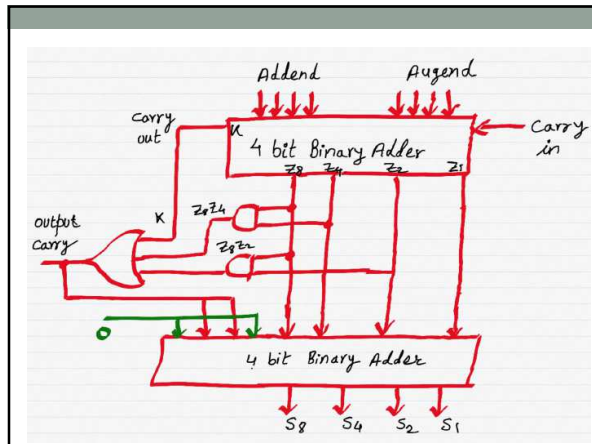 Addend Augend
Carry out
K
4 bit Binary Adder
Carry in
Z8 Z4 Z2 Z1
K
Z8Z4
output carry
Z8Z2
0
4 bit Binary Adder
S8 S4 S2 S1